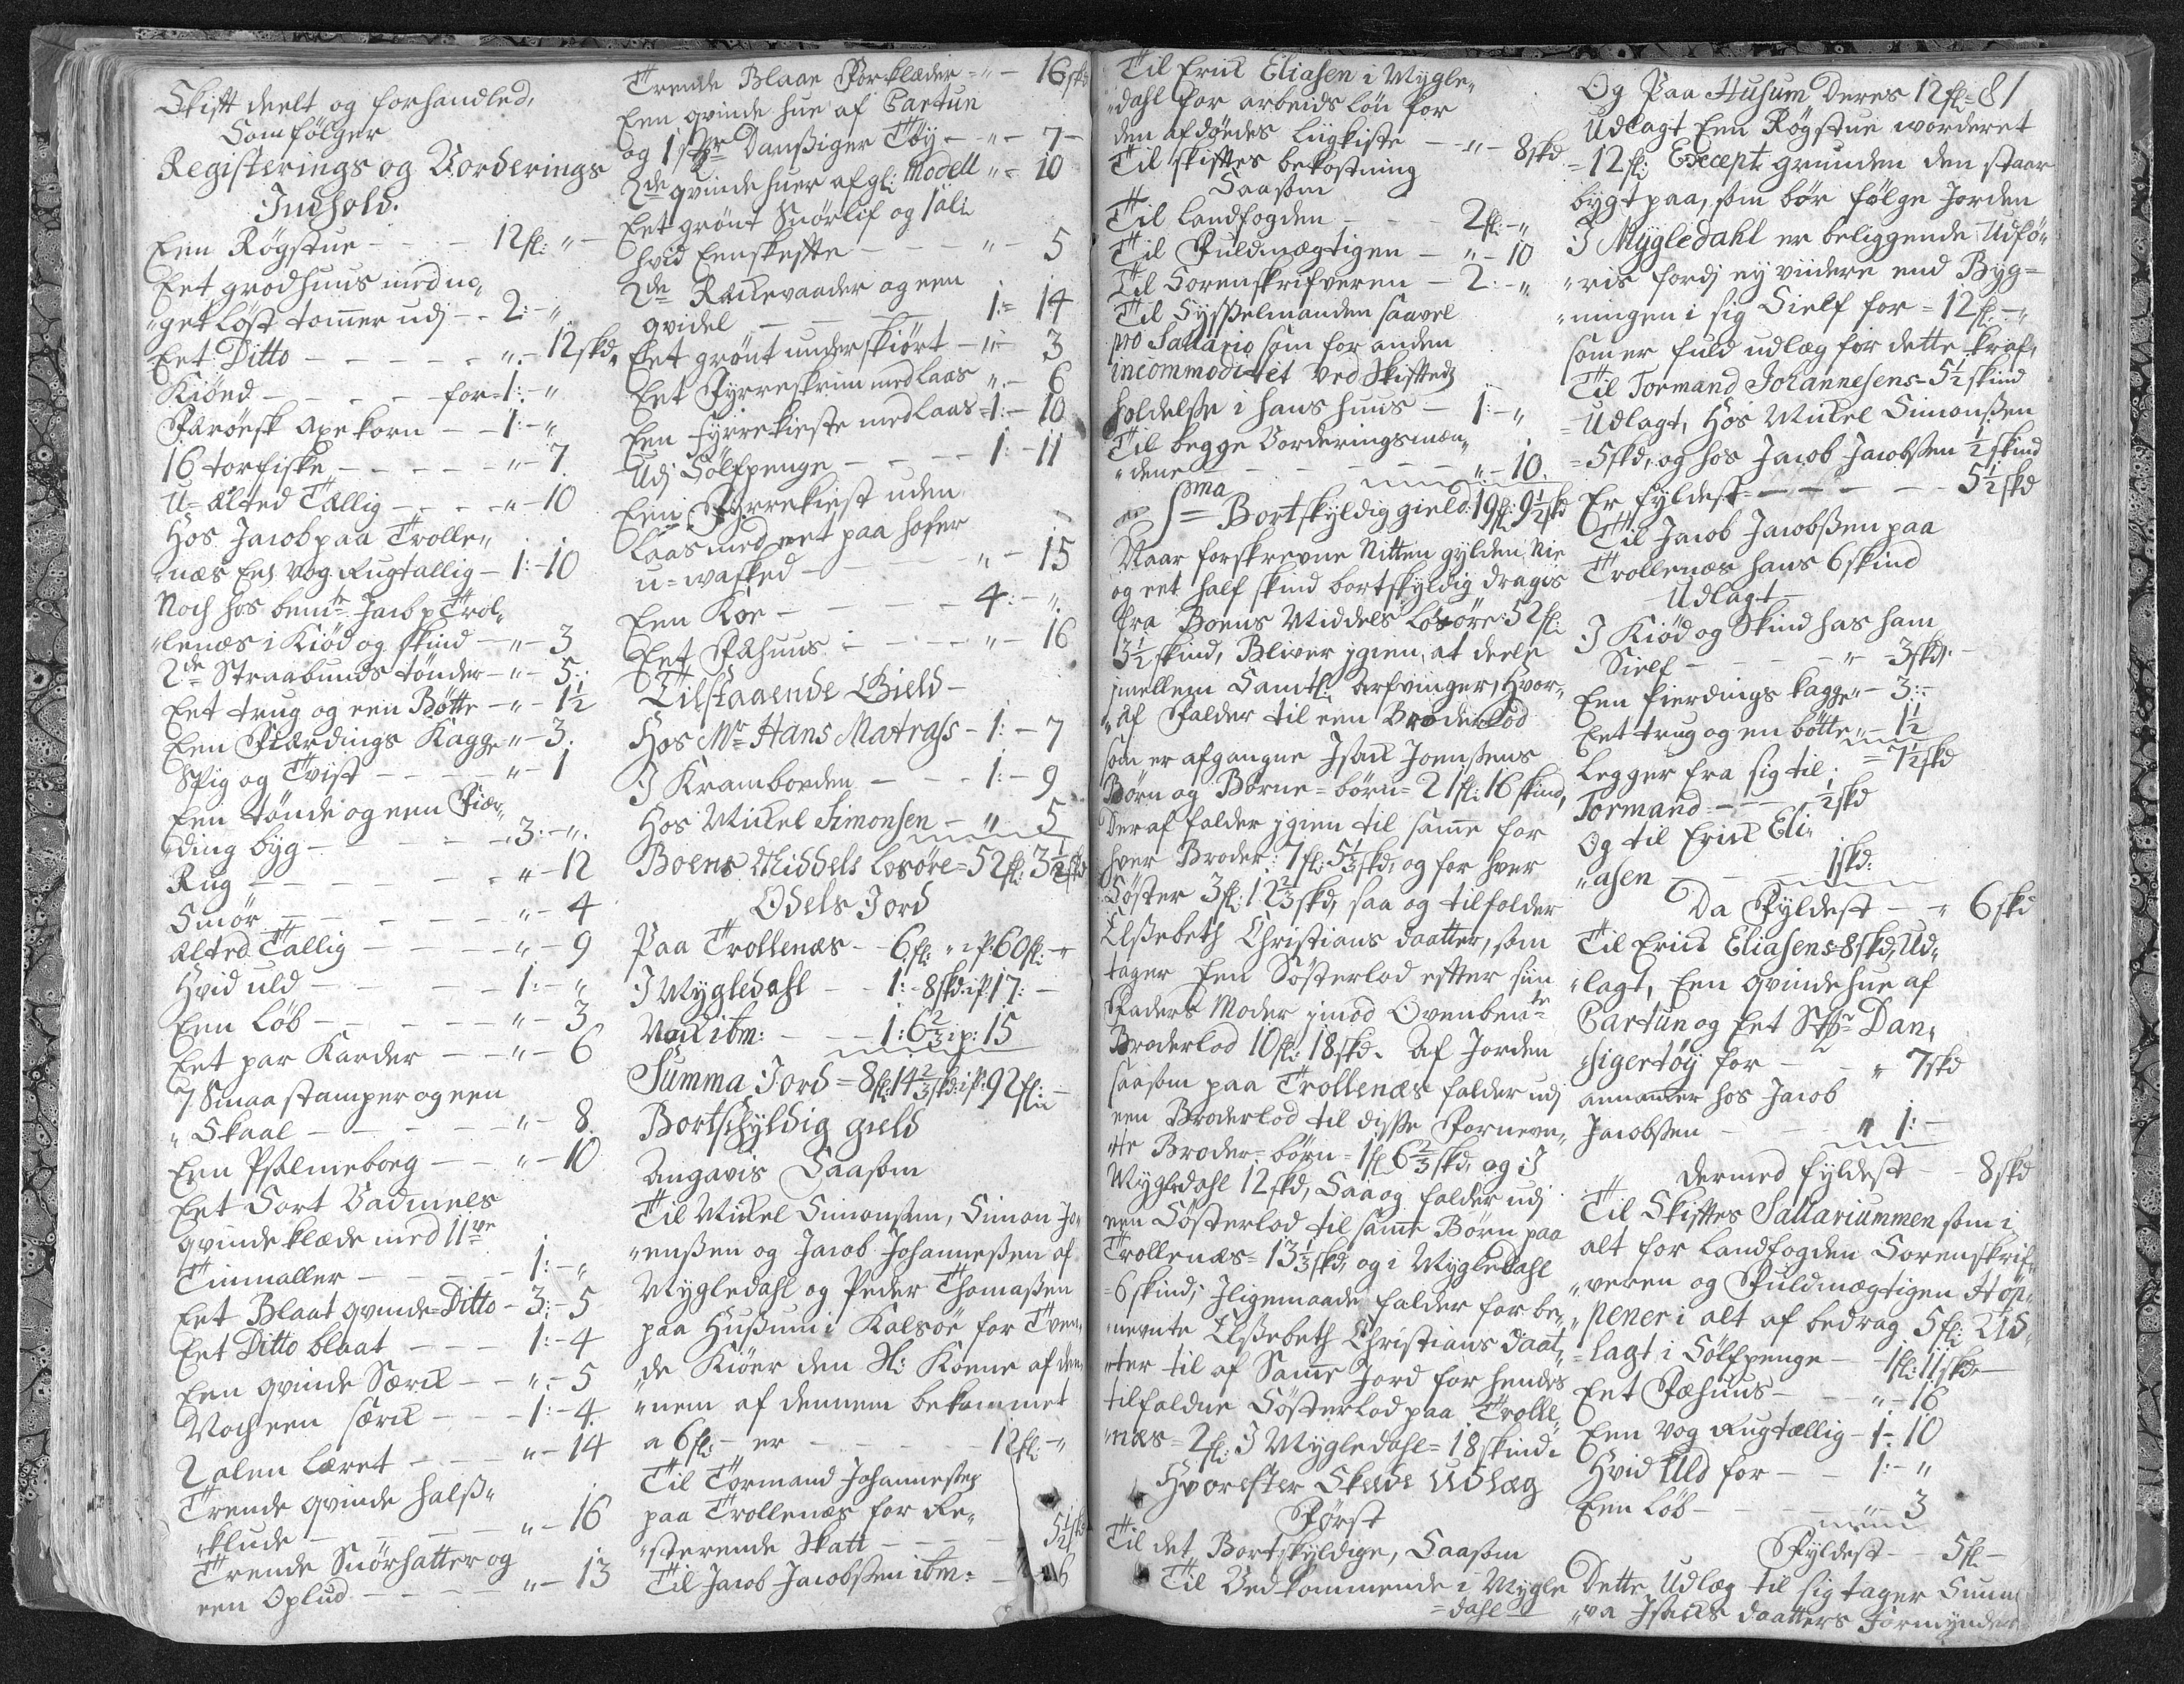 Skift deelt og forhandled,
Som fölger
Registerings og Vorderings
Indhold.
Een Røgstue - - - 12 fl: "
Eet grodhuus med no„
„get löst tomer udj - 2:-"
Eet Ditto - - - - - "-12 skd.
Kiönd - - - - for - 1:-"
Færöesk axe korn - - 1:-"
16 torfiske - - - - - "-7.
U=ælted Tællig - - - "-10
Hos Jacob paa Trolle„
„næs Een Vog Rugtallig - 1:-10
Noch hos bemte Jacob p Trol„
„lenæs i Kiöd og skind - "-3
2de Straabunds tönder - "-5:
Eet trug og een Bötte - "-1½
Een Fierdings Kagge "-3.
Spig og Tvist - - - "-1
Een tönde og een Fier„
„ding byg - - - - 3:-"
Rug - - - - - "-12
Smör - - - - - "-4
Alted Tallig - - - - "-9
Hvid uld - - - - 1:-"
Een Löb - - - - - "-3
Eet par Karder - - "-6
7 Smaa stamper og een
„Skaal - - - - - "-8.
Een Psalmeborg - - "-10
Eet Sort Vadmels
qvinde klæde med 11ve
Tinmaller - - - - 1:-"
Eet Blaat qvinde=Ditto - 3:-5
Eet Ditto blaat - - - 1:-4
Een qvinde Særck - - "-5
Noch een særck - - 1:-4.
2 alen læret - - - "-14
Trende qvinde halß„
„klude - - - - - "-16
Trende Snörhatter og
een Oplud - - - - "-13
Trende Blaae Forklæder - "-16 skd
Een qvinde hue af Cartun
og 1 st Danßiger Töy - - "-7-
2de qvinde huer af gl: Modell "-10
Eet grönt Snörlif og 1 ali
hvid Eenskefte - - - "-5
2de Rækevaader og een
qvidel - - - - - 1:-14
Eet grönt underskiört - "-3
Eet Fyrreskrin med laas "-6
Een fyrrekieste med laas - 1:-10
Udj Sölfpenge - - - - 1:-11
Een Fyrrekiest uden
laas med eet paa hofer
u=wasked - - - - "-15
Een Koe - - - - - 4:-"
Eet Fæhuus - - - - "-16
Tilstaaende Gield-
Hos Mr Hans Matrass - 1:-7
I Kramboeden - - - 1:-9
Hos Mickel Simonsen - "-5
Boens Middels Losöre = 52 fl: 3½ skd
Odels Jord
Paa Trollenæs - - 6 fl: " i P: 60 fl:-"
I Mygledahl - - 1:-8 skd: i P: 17:-
Noch ibm: - - - 1: 6⅔ i p: 15
Summa Jord = 8 fl: 14⅔ skd: i P: 92 fl:-"
Bortschyldig gield
Angavis Saasom
Til Mickel Simonsen, Simon Jo„
„ensßen og Jacob Johanneßen af
Mygledahl og Peder Thomaßen
paa Hußum i Kalsöe for Tven„
„de Kiöer den Sl: Koene af dem„
„nem af dennem bekommet
a 6 fl:- er - - - - - 12 fl:-"
Til Tormand Johannesen
paa Trollenæs for Re„
„sterende Skatt - - - - 5½ skd
Til Jacob Jacobßen ibm: - - 6
Til Erick Eliasen i Mygle„
„dahl for arbeids lön for
den afdöedes Liigkiste - - "-8 skd
Til skiftes bekostning
Saasom
Til Landfogden - - - 2 fl:-"
Til Fuldmægtigen - - "-10
Til Sorenskrifveren - 2:-"
Til Sysßelmanden saavel
pro Sallario som for anden
incommoditet Ved Skiftets
holdelße i hans huus - 1:-"
Til begge Vorderingsmæn„
„dene - - - - - - "-10.
er Sma = Bortskyldig gield: 19 fl: 9½ skd
Naar forskrevne Nitten gylden Nie
og eet half skind bortskyldig dragis
fra Boens Middels Losöre: 52 fl:
3½ skind, Bliver igien, at deele
imellem Samtl: Arfvinger, Hvor„
„af Falder til een Broderlod
som er afgangne Isack Joenßens
Börn og Börne=börn = 21 fl: 16 skind,
Deraf falder igien til same for
hver Broder: 7 fl: 5⅓ skd, og for hver
Söster 3 fl: 12⅔ skd, saa og tilfalder
Elßebeth Christians daatter, som
tager Een Sösterlod efter sin
Faders Moder imod Ovenbente
Broderlod 10 fl: 18 skd. Af Jorden
saasom paa Trollenæs falder udj
een Broderlod til disße Fornevn„
„te Broder=börn = 1 fl 6⅔ skd, og i J
Mygledahl 12 skd, Saa og falder udj
een Sösterlod til same Börn paa
Trollenæs = 13⅓ skd, og i Mygledahl
= 6 skind, Iligemaade falder for be„
„nevnte Elßebeth Christians daat„
„ter til af Same Jord for hendes
tilfaldne Sösterlod paa Trolle„
„næs = 2 fl: I Mygledahl = 18 skind.
Hvorefter Skeede Udlæg
Först
Til det Bortskyldige, Saasom
Til Vedkommende i Mygle
=dahl
Og Paa Husum Deres 12 fl: 81
Udlagt Een Røgstue worderet
= 12 fl: Except grunden den staar
bygt paa, som bör fölge Jorden
I Mygledahl er beliggende Udfö„
„ris fordj ey viidere end Byg=
„ningen i sig Sielf for = 12 fl:-"
som er fuld udlæg for dette kraf,
Til Tormand Johannesens = 5½ skind
= Udlagt, Hos Mickel Simonßen
= 5 skd, og hos Jacob Jacobßen ½ skind
Er fyldest - - - - - - 5½ skd
Til Jacob Jacobßen paa
Trollenæs hans 6 skind
Udlagt
I Kiöd og Skind has ham
Sielf - - - - - "-3 skd.
Een fierdings kagge - "-3:-
Eet trug og en bötte "-1½
= 7½ skd
Legger fra sig til,
Tormand - - - ½ skd
Og til Erick Eli„
„asen - - - 1 skd:
Da Fyldest - - " 6 skd
Til Erick Eliasens = 8 skd, Ud„
„lagt, Een qvinde hue af
Cartun og Eet St Dan„
„sigertöy for - - " 7 skd
annammer hos Jacob
Jacobßen - - - " 1:-
Dermed fyldest - - 8 skd
Til Skiftes Sallariummen som i
alt for Landfogden Sorenskrif„
„veren og Fuldmægtigen
„pener i alt af bedrag 5 fl: Ud„
=lagt i Sölfpenge - 1 fl: 11 skd-
Eet Fæhuus - - - "-16
Een Vog Rugtællig - 1-10
Hvid Uld for - - 1:-"
Een löb - - - - "-3
Fyldest - - 5 fl -
Dette Udlæg til sig tager Sunn„
„va Isacks daatters Formynder